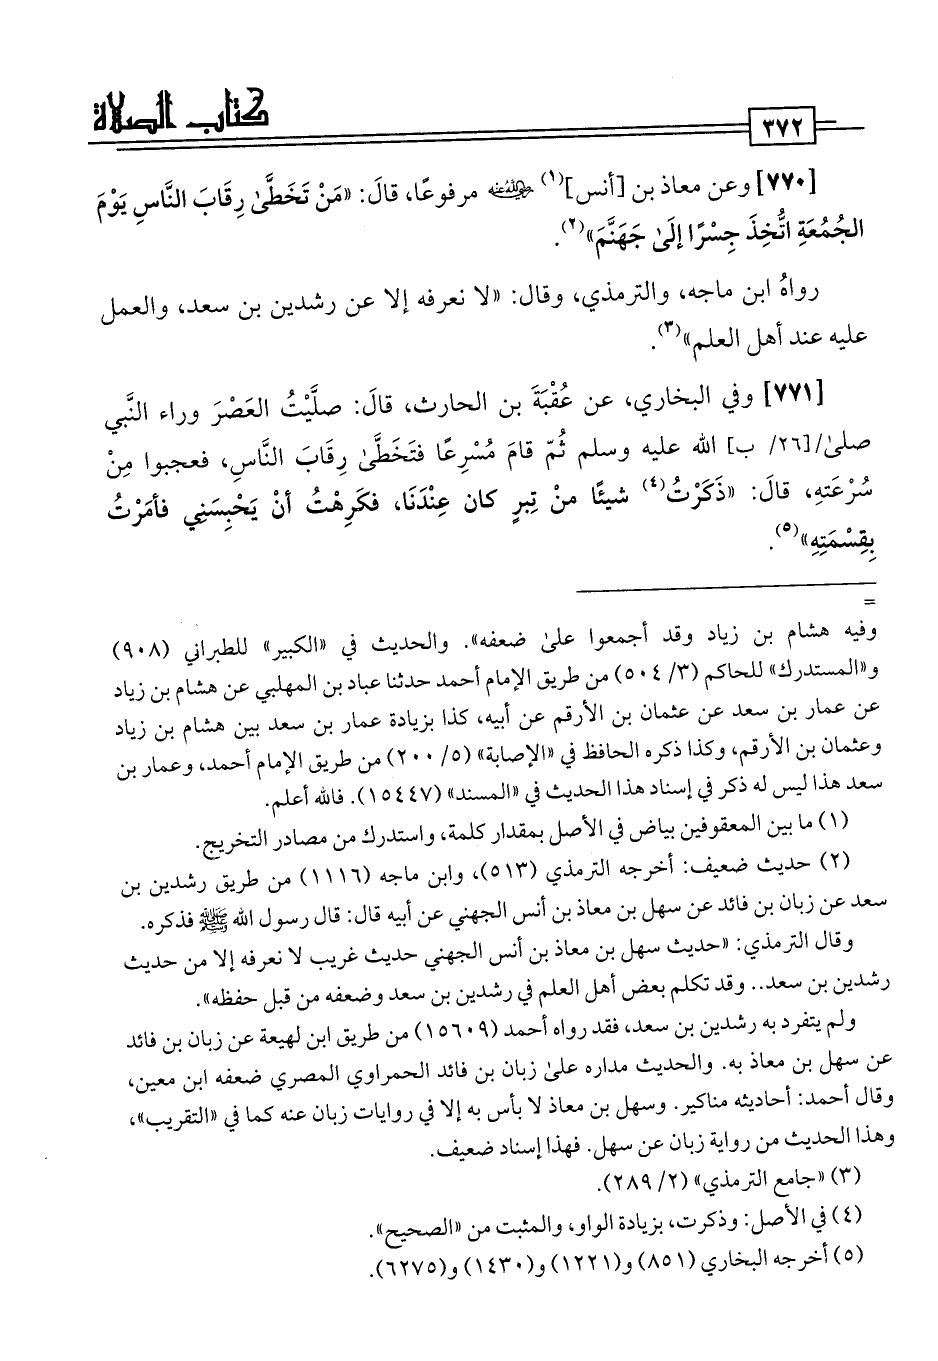 كتاب الصلاة
٣٧٢
[٧٧٠] وعن معاذ بن [أنس](١) رضي الله عنه مرفوعًا، قالَ: «مَنْ تَخَطَّىٰ رِقَابَ النَّاسِ يَوْمَ
الجُمُعَةِ اتُّخِذَ جِسْرًا إلَىٰ جَهَنَّمَ»(٢).
رواهُ ابن ماجه، والترمذي، وقال: «لا نعرفه إلا عن رشدين بن سعد، والعمل
عليه عند أهل العلم»(٣).
[٧٧١] وفي البخاري، عن عُقْبَةَ بن الحارث، قالَ: صلَّيْتُ العَصْرَ وراء النَّبي
صلىٰ/[٢٦/ ب] الله عليه وسلم ثُمّ قامَ مُسْرِعًا فتَخَطَّىٰ رِقَابَ النَّاسِ، فعجبوا مِنْ
سُرْعَتهِ، قالَ: «ذَكَرْتُ(٤) شيئًا منْ تِبرٍ كان عِنْدَنَا، فكَرِهْتُ أنْ يَحْبِسَنِي فأمَرْتُ
بِقِسْمَتِهِ»(٥).
=
وفيه هشام بن زياد وقد أجمعوا علىٰ ضعفه». والحديث في «الكبير» للطبراني (٩٠٨)
و«المستدرك» للحاكم (٣/ ٥٠٤) من طريق الإمام أحمد حدثنا عباد بن المهلبي عن هشام بن زياد
عن عمار بن سعد عن عثمان بن الأرقم عن أبيه، كذا بزيادة عمار بن سعد بين هشام بن زياد
وعثمان بن الأرقم، وكذا ذكره الحافظ في «الإصابة» (٥/ ٢٠٠) من طريق الإمام أحمد، وعمار بن
سعد هذا ليس له ذكر في إسناد هذا الحديث في «المسند» (١٥٤٤٧). فالله أعلم.
(١) ما بين المعقوفين بياض في الأصل بمقدار كلمة، واستدرك من مصادر التخريج.
(٢) حديث ضعيف: أخرجه الترمذي (٥١٣)، وابن ماجه (١١١٦) من طريق رشدين بن
سعد عن زبان بن فائد عن سهل بن معاذ بن أنس الجهني عن أبيه قال: قال رسول الله ﷺ فذكره.
وقال الترمذي: «حديث سهل بن معاذ بن أنس الجهني حديث غريب لا نعرفه إلا من حديث
رشدين بن سعد.. وقد تكلم بعض أهل العلم في رشدين بن سعد وضعفه من قبل حفظه».
ولم يتفرد به رشدين بن سعد، فقد رواه أحمد (١٥٦٠٩) من طريق ابن لهيعة عن زبان بن فائد
عن سهل بن معاذ به. والحديث مداره علىٰ زبان بن فائد الحمراوي المصري ضعفه ابن معين،
وقال أحمد: أحاديثه مناكير. وسهل بن معاذ لا بأس به إلا في روايات زبان عنه كما في «التقريب»،
وهذا الحديث من رواية زبان عن سهل. فهذا إسناد ضعيف.
(٣) «جامع الترمذي» (٢/ ٢٨٩).
(٤) في الأصل: وذكرت، بزيادة الواو، والمثبت من «الصحيح».
(٥) أخرجه البخاري (٨٥١) و(١٢٢١) و(١٤٣٠) و(٦٢٧٥).